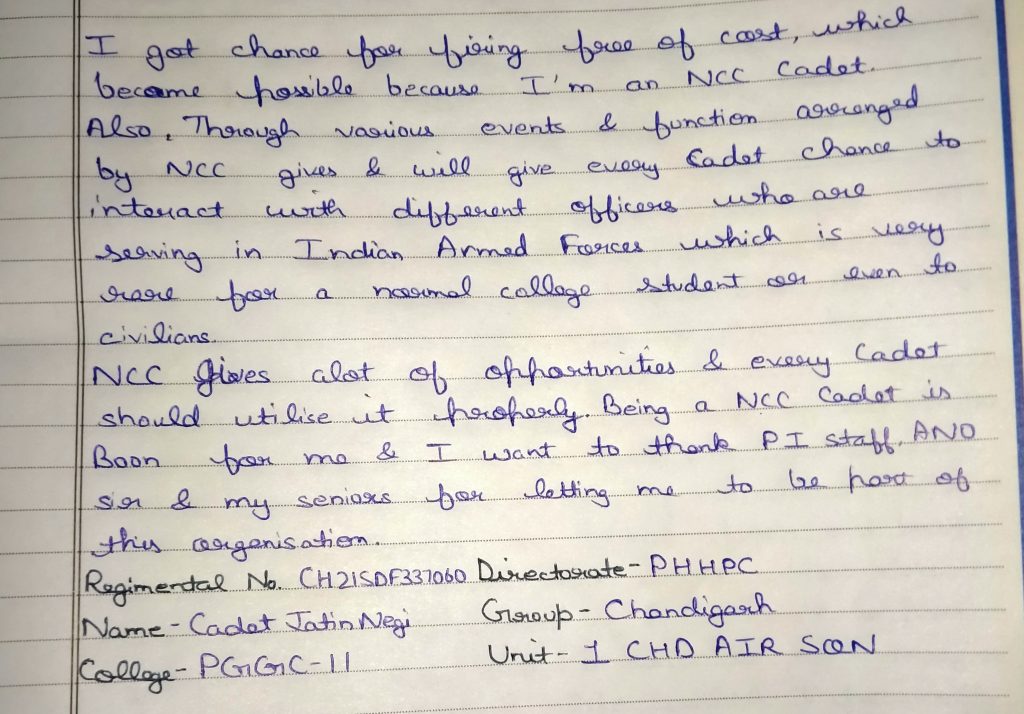 I got chance for firing free of cost, which
became possible because I'm an NCC Cadet.
Also, Through various events & function arranged
by NCC gives & will give every Cadet chance to
interact with different officers who are
serving in Indian Armed Forces which is very
rare for a normal college student or even to
civilians.
NCC gives alot of opportunities & every Cadet
should utilise it properly. Being a NCC Cadet is
Boon for me & I want to thank PI staff, ANO
sir & my seniors for letting me to be part of
this organisation.
Regimental No. CH21SDF337060 Directorate- PHHPC
Name - Cadet Jatin Negi Group - Chandigarh
College- PGGC-11 Unit - 1 CHD AIR SQN